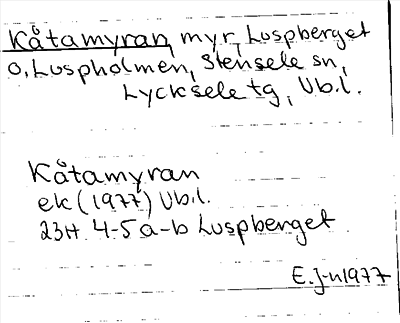 Kåtamyran, myr, Luspberget
o, Luspholmen, Stensele sn,
Lycksele tg, Vb.l.
Kåtamyran
ek (1977) Vb.l.
23H 4-5 a-b Luspberget
E.J-n 1977